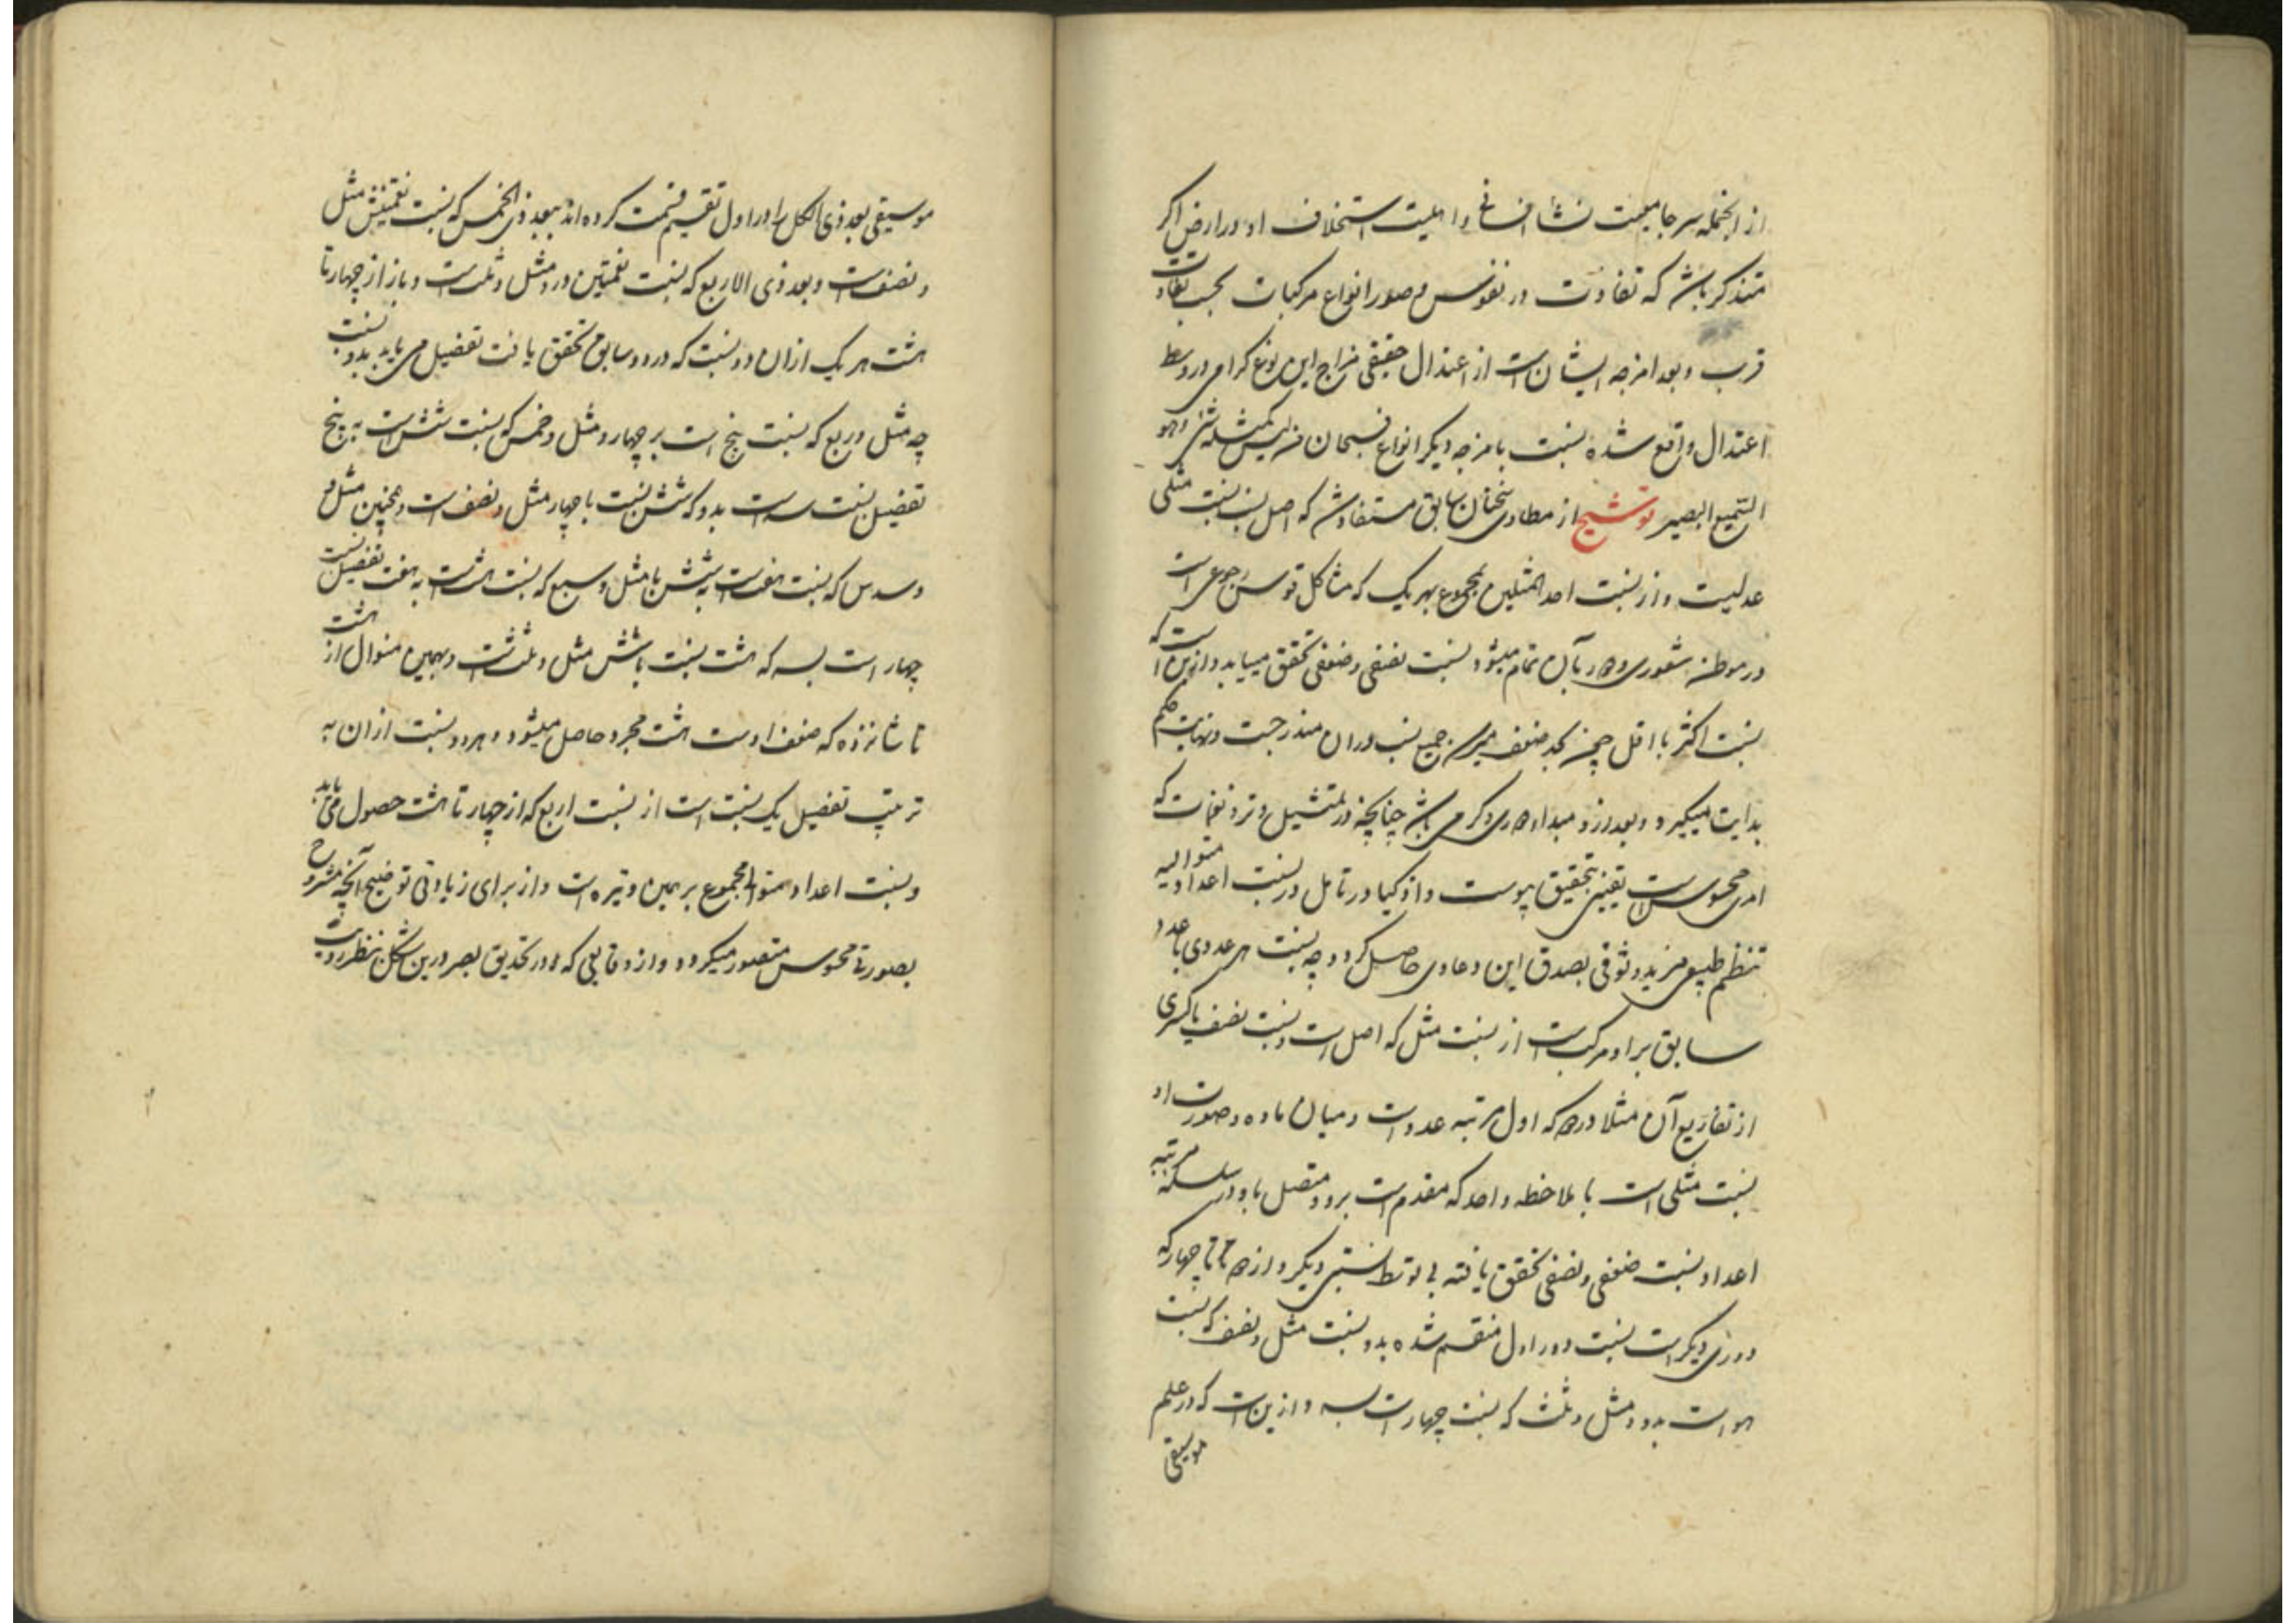 از انجمله سر جامعیت نشأ انسانی و اهلیت استخلاف او در ارض اکر
متذکر باش که تفاوت در نفوس و صور انواع مرکبات بحسب تفاوت
قرب و بعد امزجه ایشان است از اعتدال حقیقی مزاج این نوع گرامی در وسط
اعتدال واقع شده نسبت بامزجه دیکر انواع فسبحان من لیس کمثله شئ وهو
السمیع البصیر توشیح از مطاوی سخنان سابق مستفاد شد که اصل نسب نسبت مثلی
عدلیت و از نسبت احد المثلین بمجموع بهر یک که مشاکل قوس رجوعی است
در موطن شعوری و دور بآن تمام میشود نسبت نصفی و ضعفی تحقق مییابد و ازین است که
نسبت اکثر با اقل چون بحد ضعف میرسد جمیع نسب دران مندرجست و نهایت حکم
بدایت میکیرد و بعد ازو مبداء دوری دکر می باشد چنانچه در تمثیل وتر و نغمات که
امری محسوس است یقینی بتحقیق پیوست و اذکیا در تامل در نسبت اعداد متوالیه
بنظم طبیعی مزید وثوقی بصدق این دعاوی حاصل کردد چه نسبت هر عددی با عدد
سابق بر او مرکب است از نسبت مثل که اصل است و نسبت نصف یا کسری
از تفاریع آن مثلا در دو که اول مرتبه عدد است و میان ماده و صورت او
نسبت مثلی است با ملاحظه واحد که مقدم است برو و متصل باو در سلسله مرتبه
اعداد نسبت ضعفی و نصفی تحقق یافته بی توسط نسبتی دیکر و از دو تا چهار که
دوری دیکر است نسبت دور اول منقسم شده بدو نسبت مثل و نصف که نسبت
سه است بدو و مثل و ثلث که نسبت چهار است بسه و ازین است که در علم
موسیقی
موسیقی بعد ذی الکل را در اول تقسیم قسمت کرده اند ببعد ذی الخمس که نسبت نغمتینش مثل
و نصف است و بعد ذی الاربع که نسبت نغمتین درو مثل و ثلث است و باز از چهار تا
هشت هر یک ازان دو نسبت که در دور سابق تحقق یافت تفصیل می یابد بدو نسبت
چه مثل و ربع که نسبت پنج است بر چهار و مثل و خمس که نسبت شش است به پنج
تفصیل نسبت سه است بدو که شش نسبت با چهار مثل و نصف است و همچنین مثل و
و سدس که نسبت هفت است به شش با مثل و سبع که نسبت هشت است به هفت تفصیل نسبت
چهار است بسه که هشت نسبت با شش مثل و ثلث است و بهمین منوال از هشت
تا شانزده که ضعف اوست هشت مجرد حاصل میشود و هر دو نسبت ازان به
ترتیب تفصیل یک نسبت است از نسبت اربع که از چهار تا هشت حصول می یابد
و نسبت اعداد متوالیه مجموع بر همین وتیره است و از برای زیادتی توضیح آنچه مشروح
بصورتی محسوس متصور میکردد و از دقایقی که در تحدیق بصر درین شکل بنظر رویت